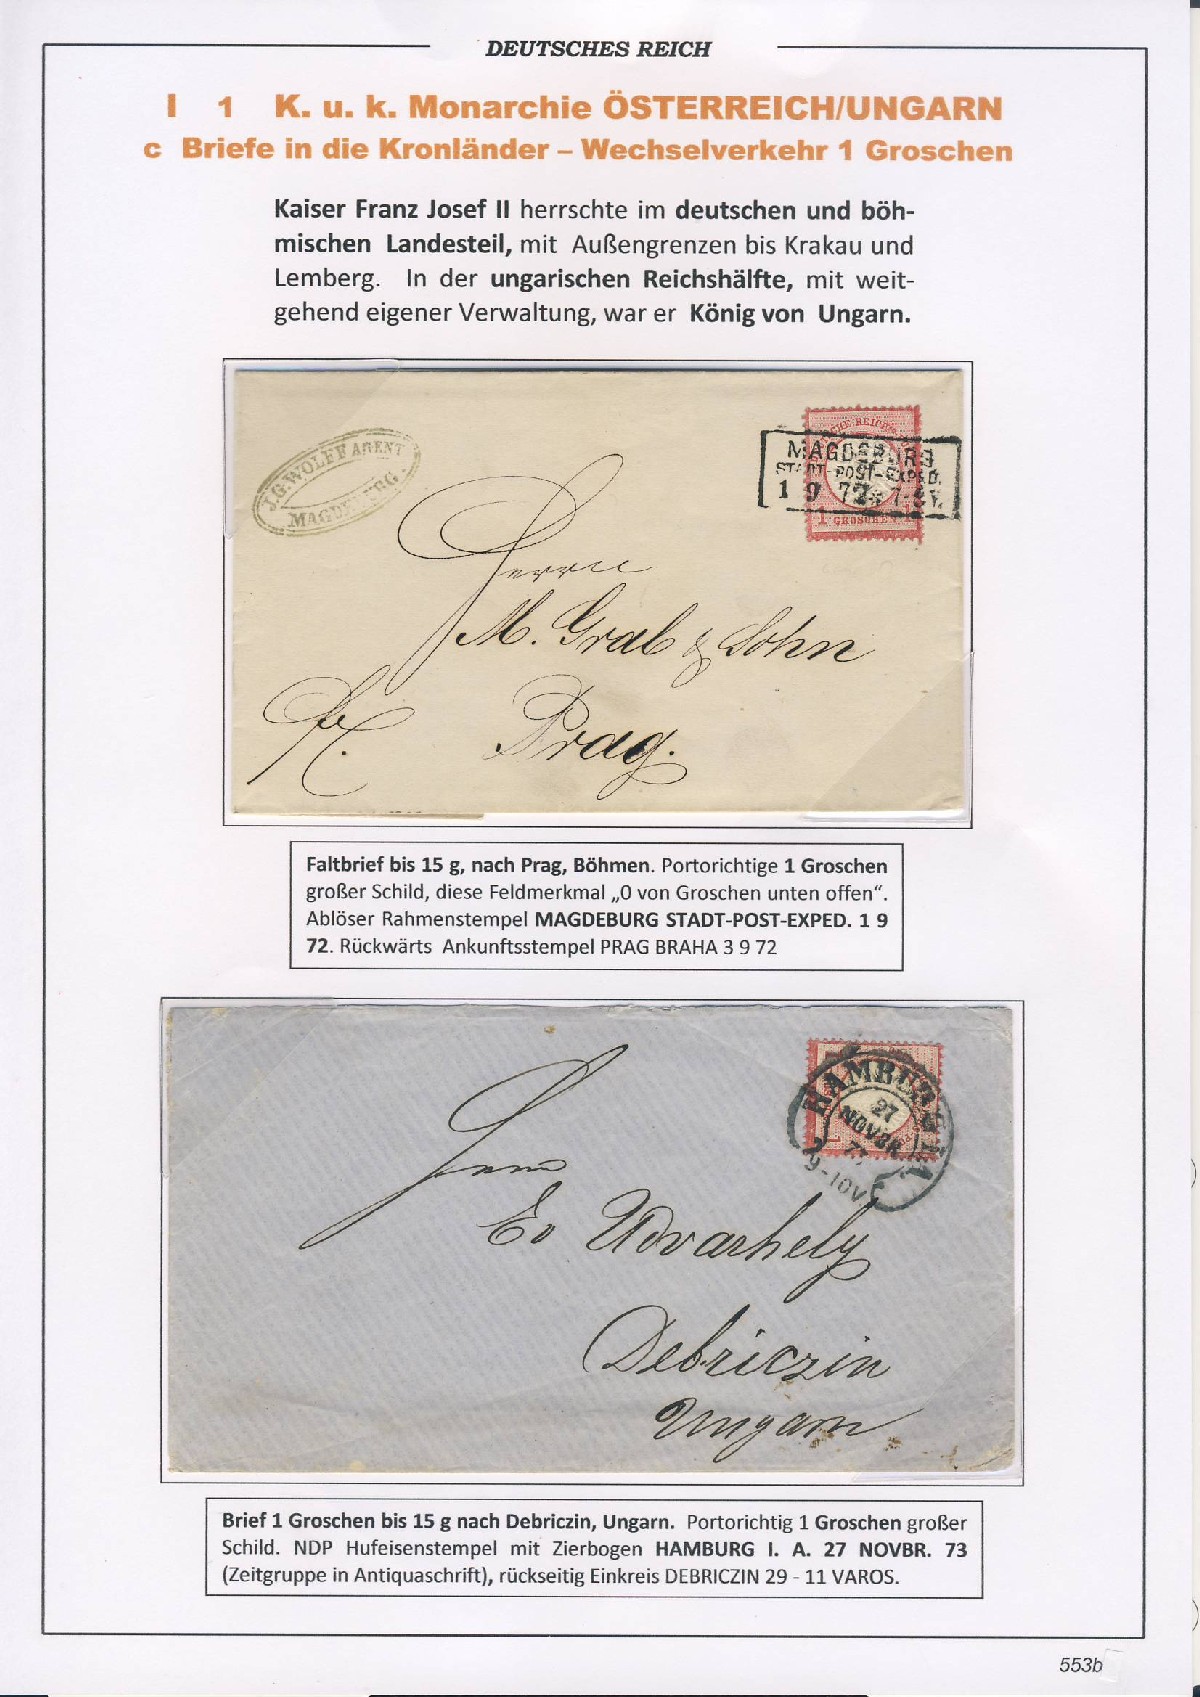 DEUTSCHES REICH
I 1 K. u. k. Monarchie ÖSTERREICH/UNGARN
c Briefe in die Kronländer – Wechselverkehr 1 Groschen
Kaiser Franz Josef II herrschte im deutschen und böh-
mischen Landesteil, mit Außengrenzen bis Krakau und
Lemberg. In der ungarischen Reichshälfte, mit weit-
gehend eigener Verwaltung, war er König von Ungarn.
J.G. WOLFF AGENT
MAGDEBURG
MAGDEBURG
STADT-POST-EXPED.
1 9 72
1 GROSCHEN 1
Herrn
M. Grab & Sohn
Prag.
Faltbrief bis 15 g, nach Prag, Böhmen. Portorichtige 1 Groschen
großer Schild, diese Feldmerkmal „0 von Groschen unten offen“.
Ablöser Rahmenstempel MAGDEBURG STADT-POST-EXPED. 1 9
72. Rückwärts Ankunftsstempel PRAG BRAHA 3 9 72
HAMBURG I.A.
27
NOVBR
73
9-10V
Herrn
Ed Udvarhely
Debriczin
Ungarn
Brief 1 Groschen bis 15 g nach Debriczin, Ungarn. Portorichtig 1 Groschen großer
Schild. NDP Hufeisenstempel mit Zierbogen HAMBURG I. A. 27 NOVBR. 73
(Zeitgruppe in Antiquaschrift), rückseitig Einkreis DEBRICZIN 29 - 11 VAROS.
553b